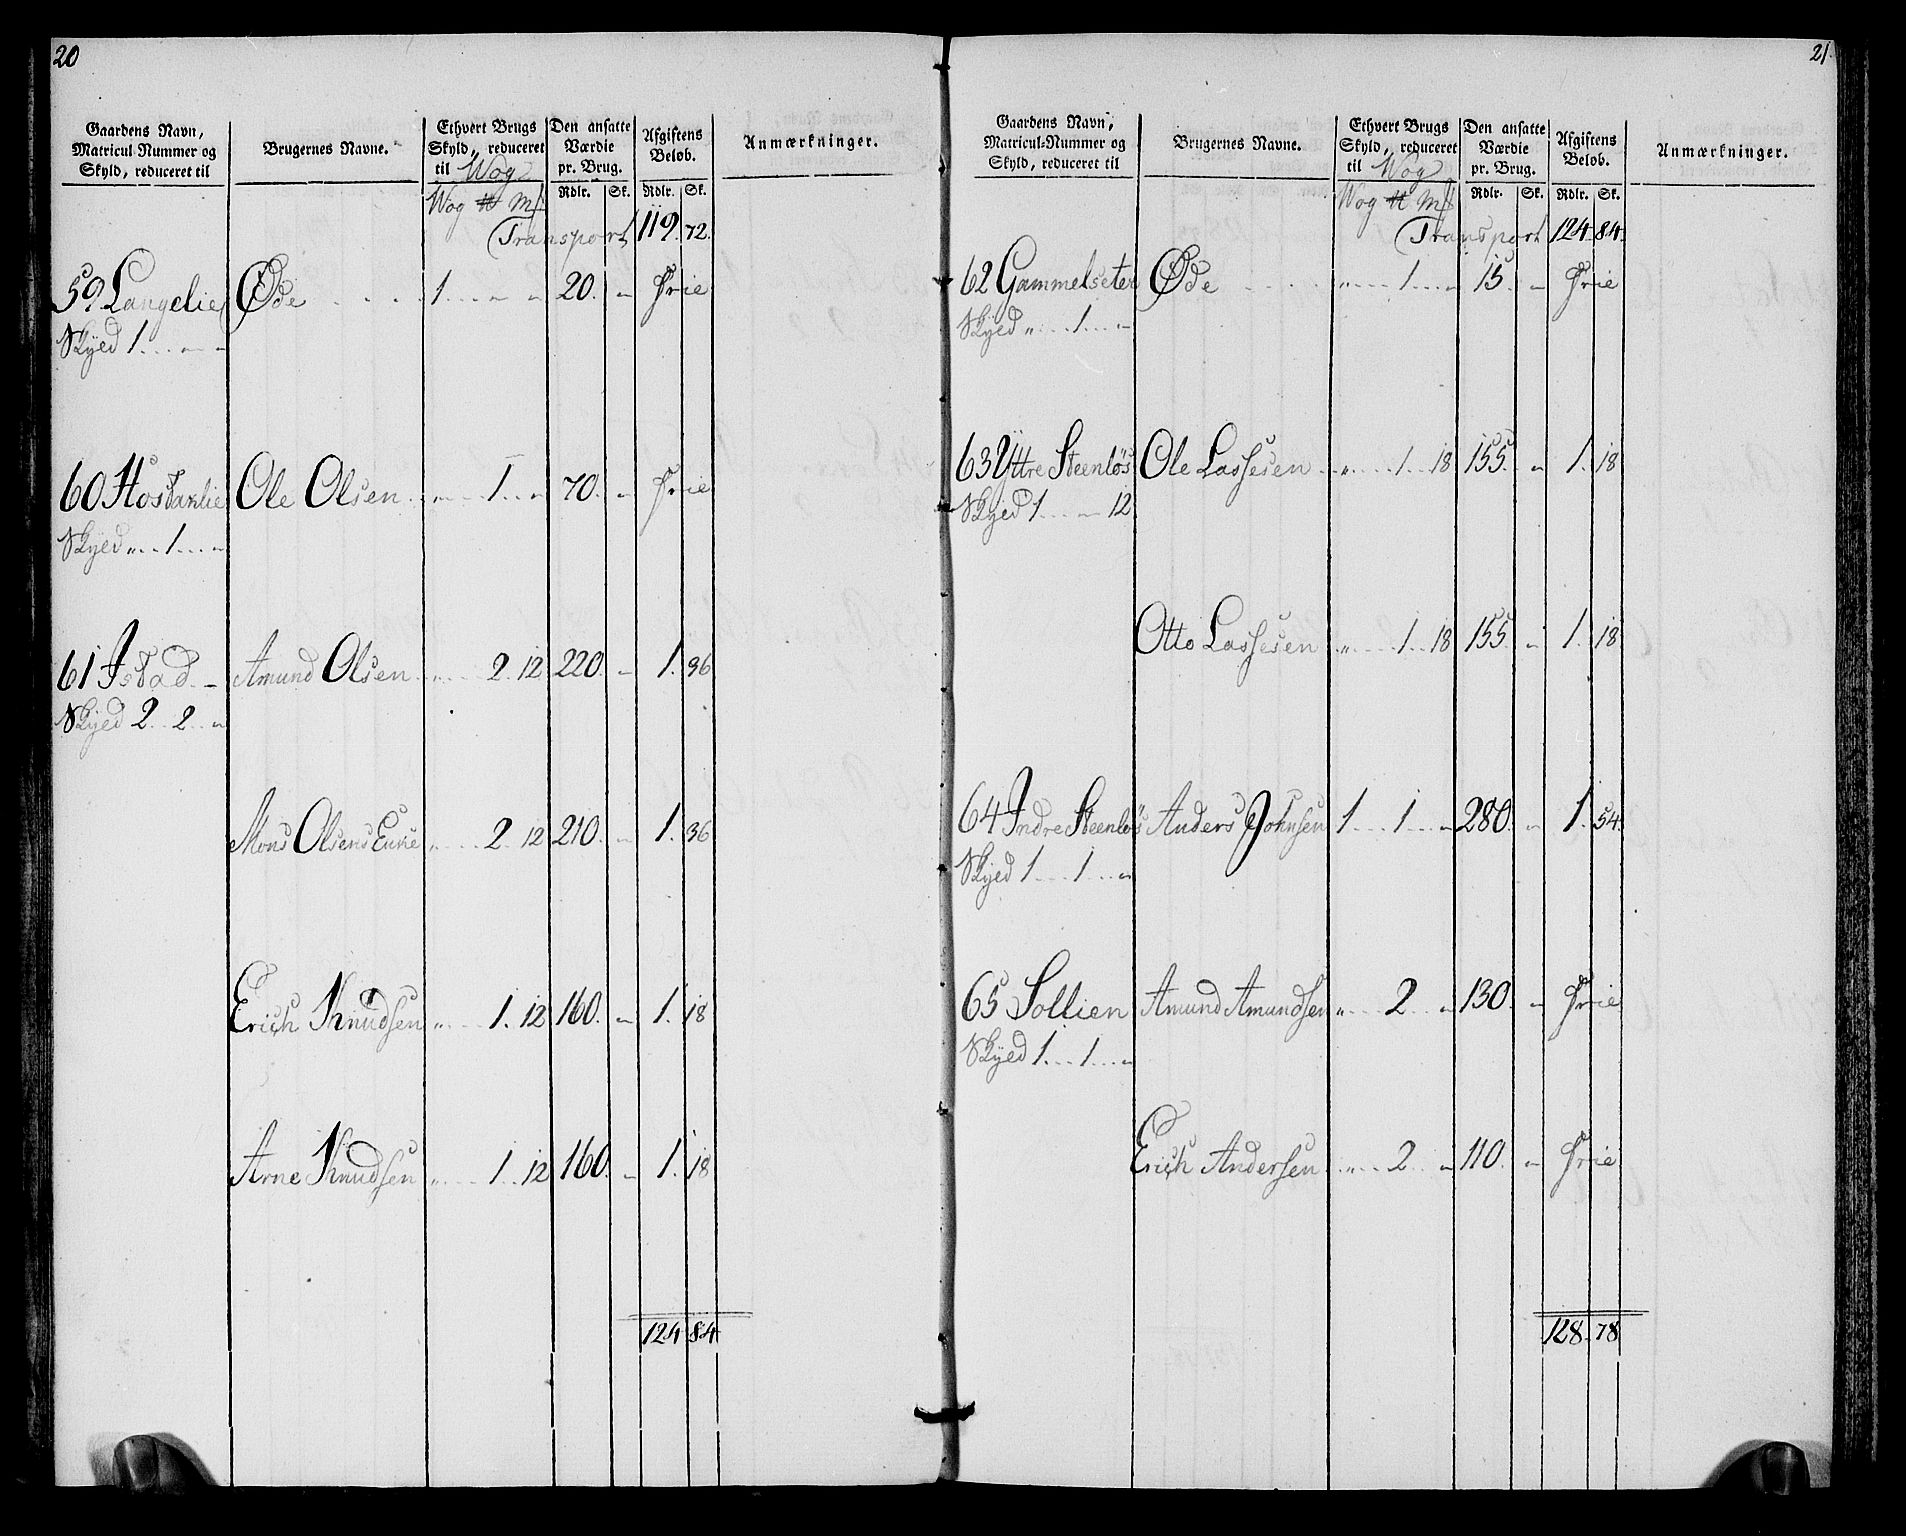 20
Gaardens Navn, Matricul-Nummer og Skyld, reduceret til
Brugernes Navne.
Ethvert Brugs Skyld, reduceret til Wog
Den ansatte Værdie pr. Brug.
Afgiftens Beløb.
Anmærkninger.
Wog ℔ Mk Rdlr. Sk. Rdlr. Sk.
Transport 119. 72.
59 Langelie Øde 1 " " 20. " Frie
Skyld 1 " "
60 Hostanlie Ole Olsen " 1 " 70. " Frie
Skyld " 1 "
61 Istad Amund Olsen " 2. 12 220. " 1. 36
Skyld 2 2 "
Mons Olsens Enke " 2. 12 210. " 1. 36
Erich Knudsen " 1. 12 160. " 1. 18
Arne Knudsen " 1. 12 160. " 1. 18
124 84
21.
Gaardens Navn, Matricul-Nummer og Skyld, reduceret til
Brugernes Navne.
Ethvert Brugs Skyld, reduceret til Wog
Den ansatte Værdie pr. Brug.
Afgiftens Beløb.
Anmærkninger.
Wog ℔ Mk Rdlr. Sk. Rdlr. Sk.
Transport 124 84.
62 Gammelseter Øde " 1 " 15. " Frie
Skyld " 1 "
63 Yttre Steenløs Ole Lassesen " 1 18 155. " 1. 18
Skyld 1 " 12
Otto Lassesen " 1 18 155. " 1. 18
64 Indre Steenløs Anders Johnsen 1 1 " 280. " 1. 54.
Skyld 1 1 "
65 Sollien Amund Amundsen " 2 " 130. " Frie
Skyld 1 1 "
Erich Andersen " 2 " 110. " Frie
128. 78